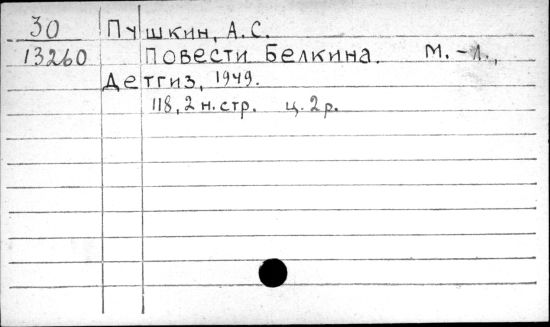 30 Пушкин, А.С.
13260 Повести Белкина. М.-Л.,
Детгиз, 1949.
118, 2 н. стр. ц. 2 р.